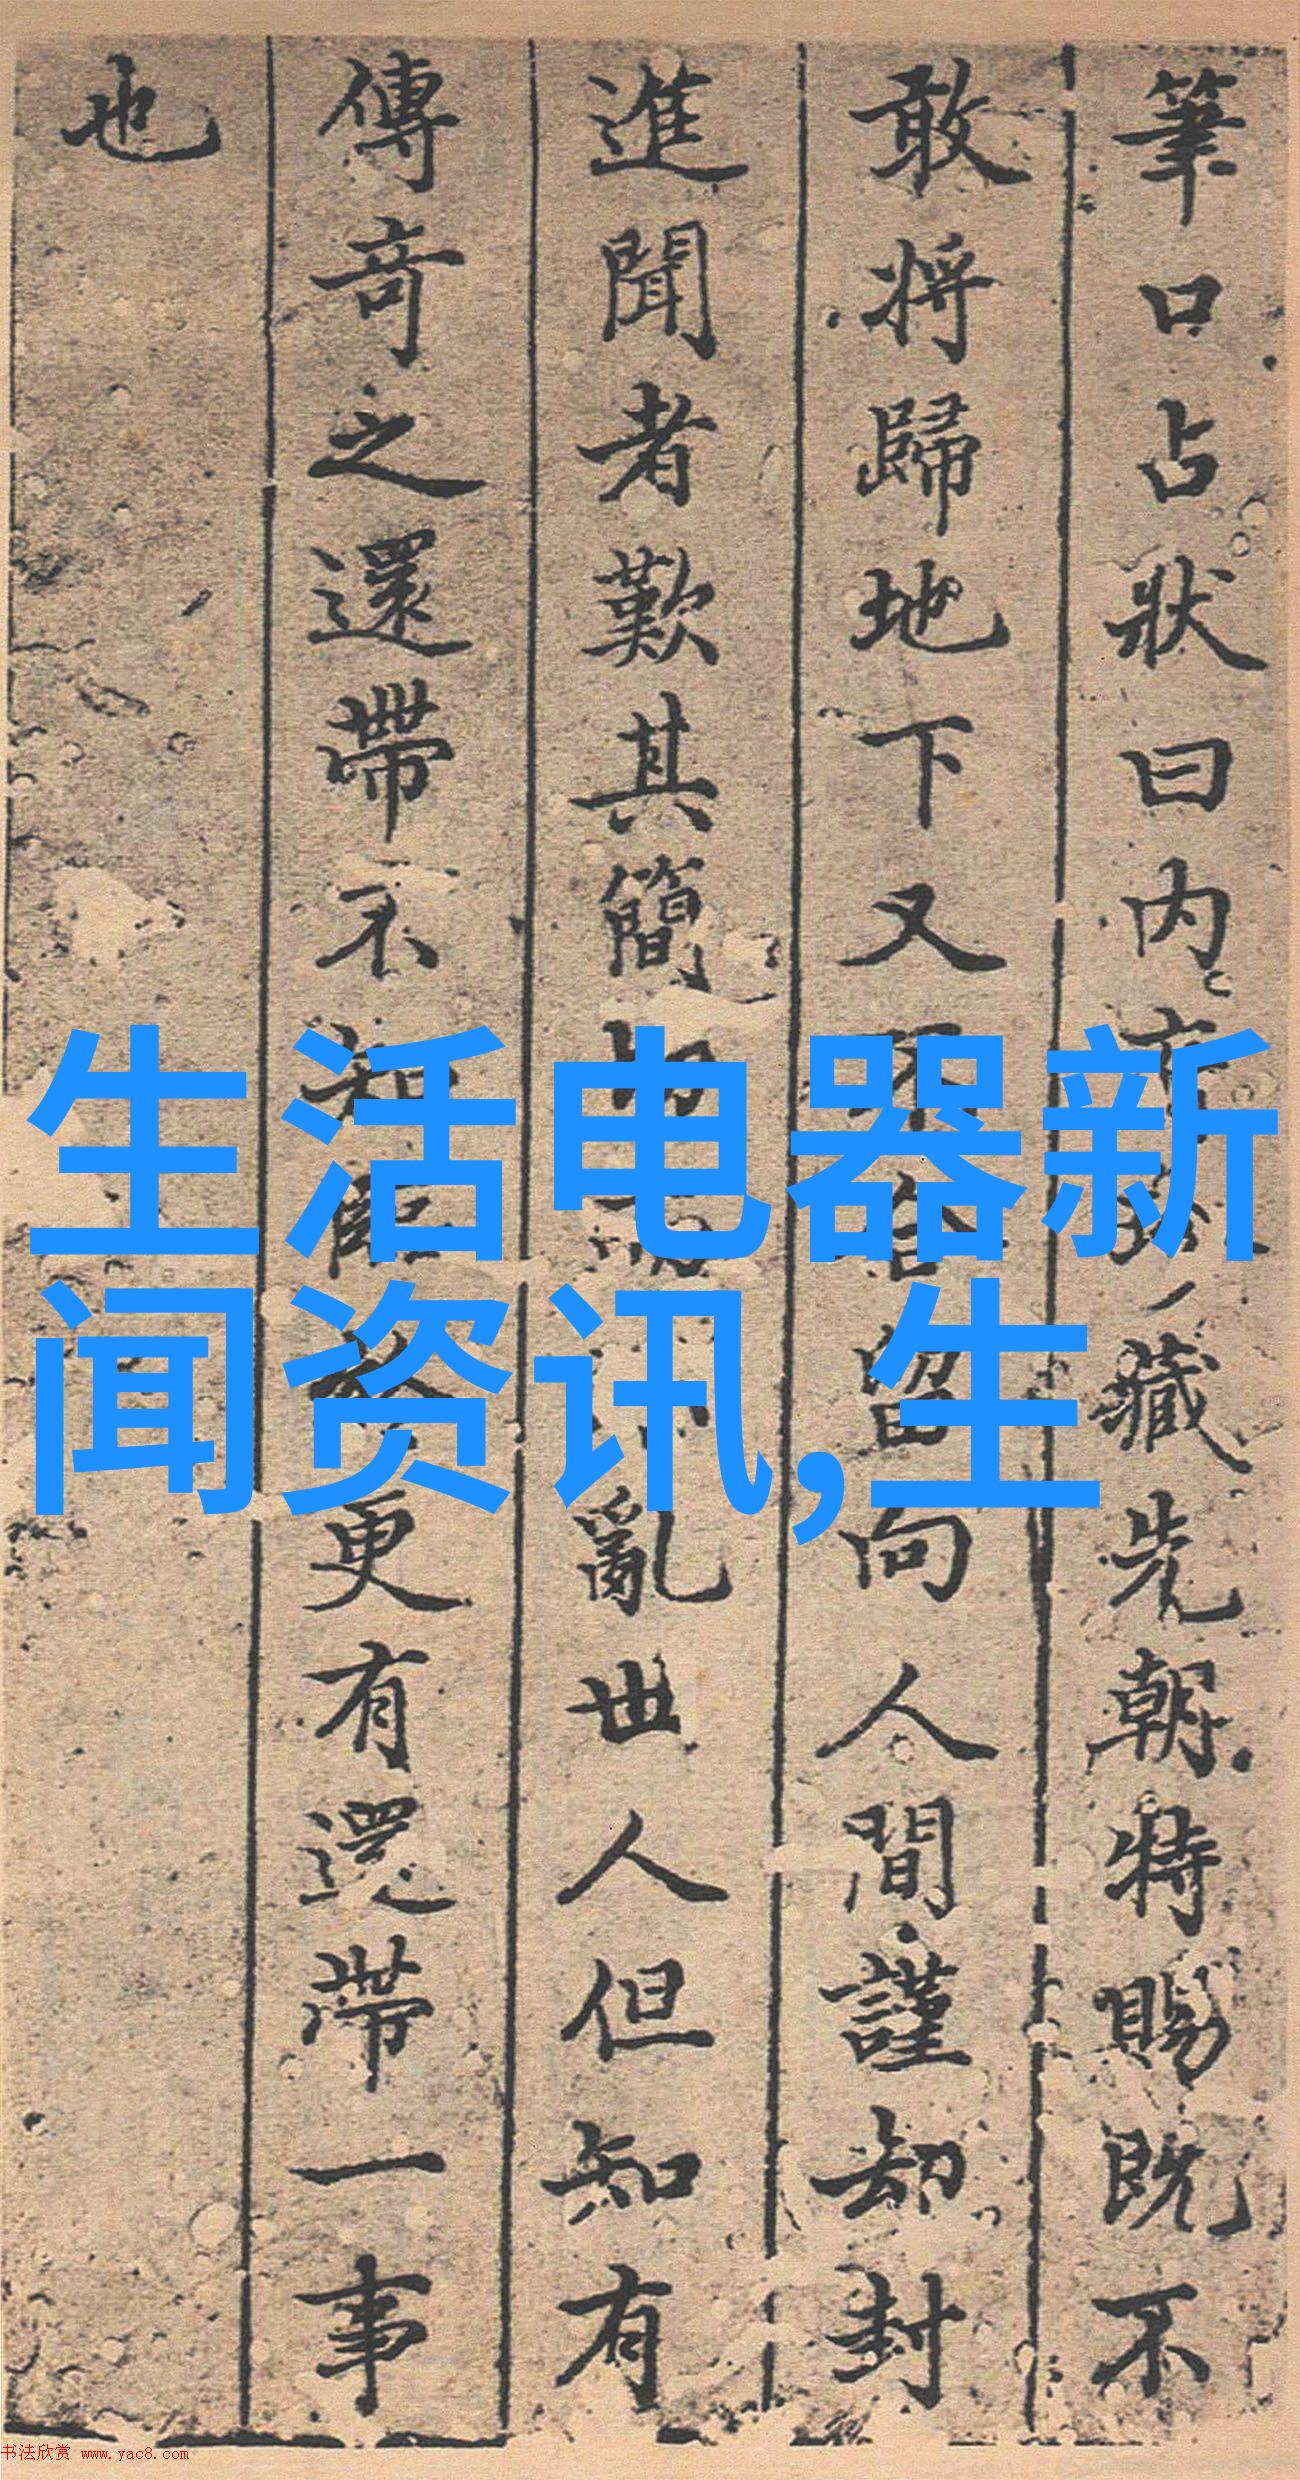 筆口占狀曰内藏先朝特賜既不
敢將歸地下又留向人間謹却封
進聞者歎其簡亂世人但知有
傳奇之還帶不更有還帶一事
也
生活电器新
闻资讯,生
书法欣赏 www.yac8.com